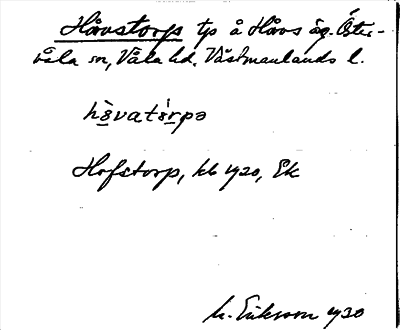 Håvstorp tp å Håvs äg. Öster-
våla sn, Våla hd. Västmanlands l.
hòvatórpə
Hofstorp, kb 1920, Ek
M. Eriksson 1920